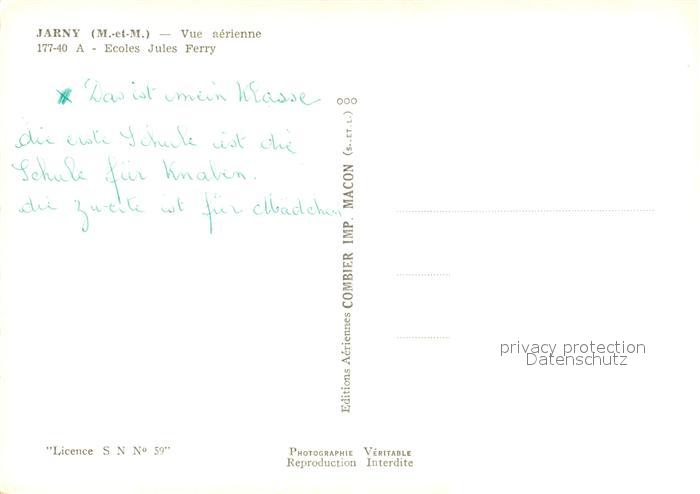 JARNY (M.-et-M.) — Vue aérienne
177-40 A - Ecoles Jules Ferry
x Das ist mein Klasse
die erste Schule ist die
Schule für Knaben.
die zweite ist für Mädchen
Editions Aériennes COMBIER IMP. MACON (S.-ET-L.) ooo
privacy protection
Datenschutz
"Licence S N Nº 59"
PHOTOGRAPHIE VÉRITABLE
Reproduction Interdite